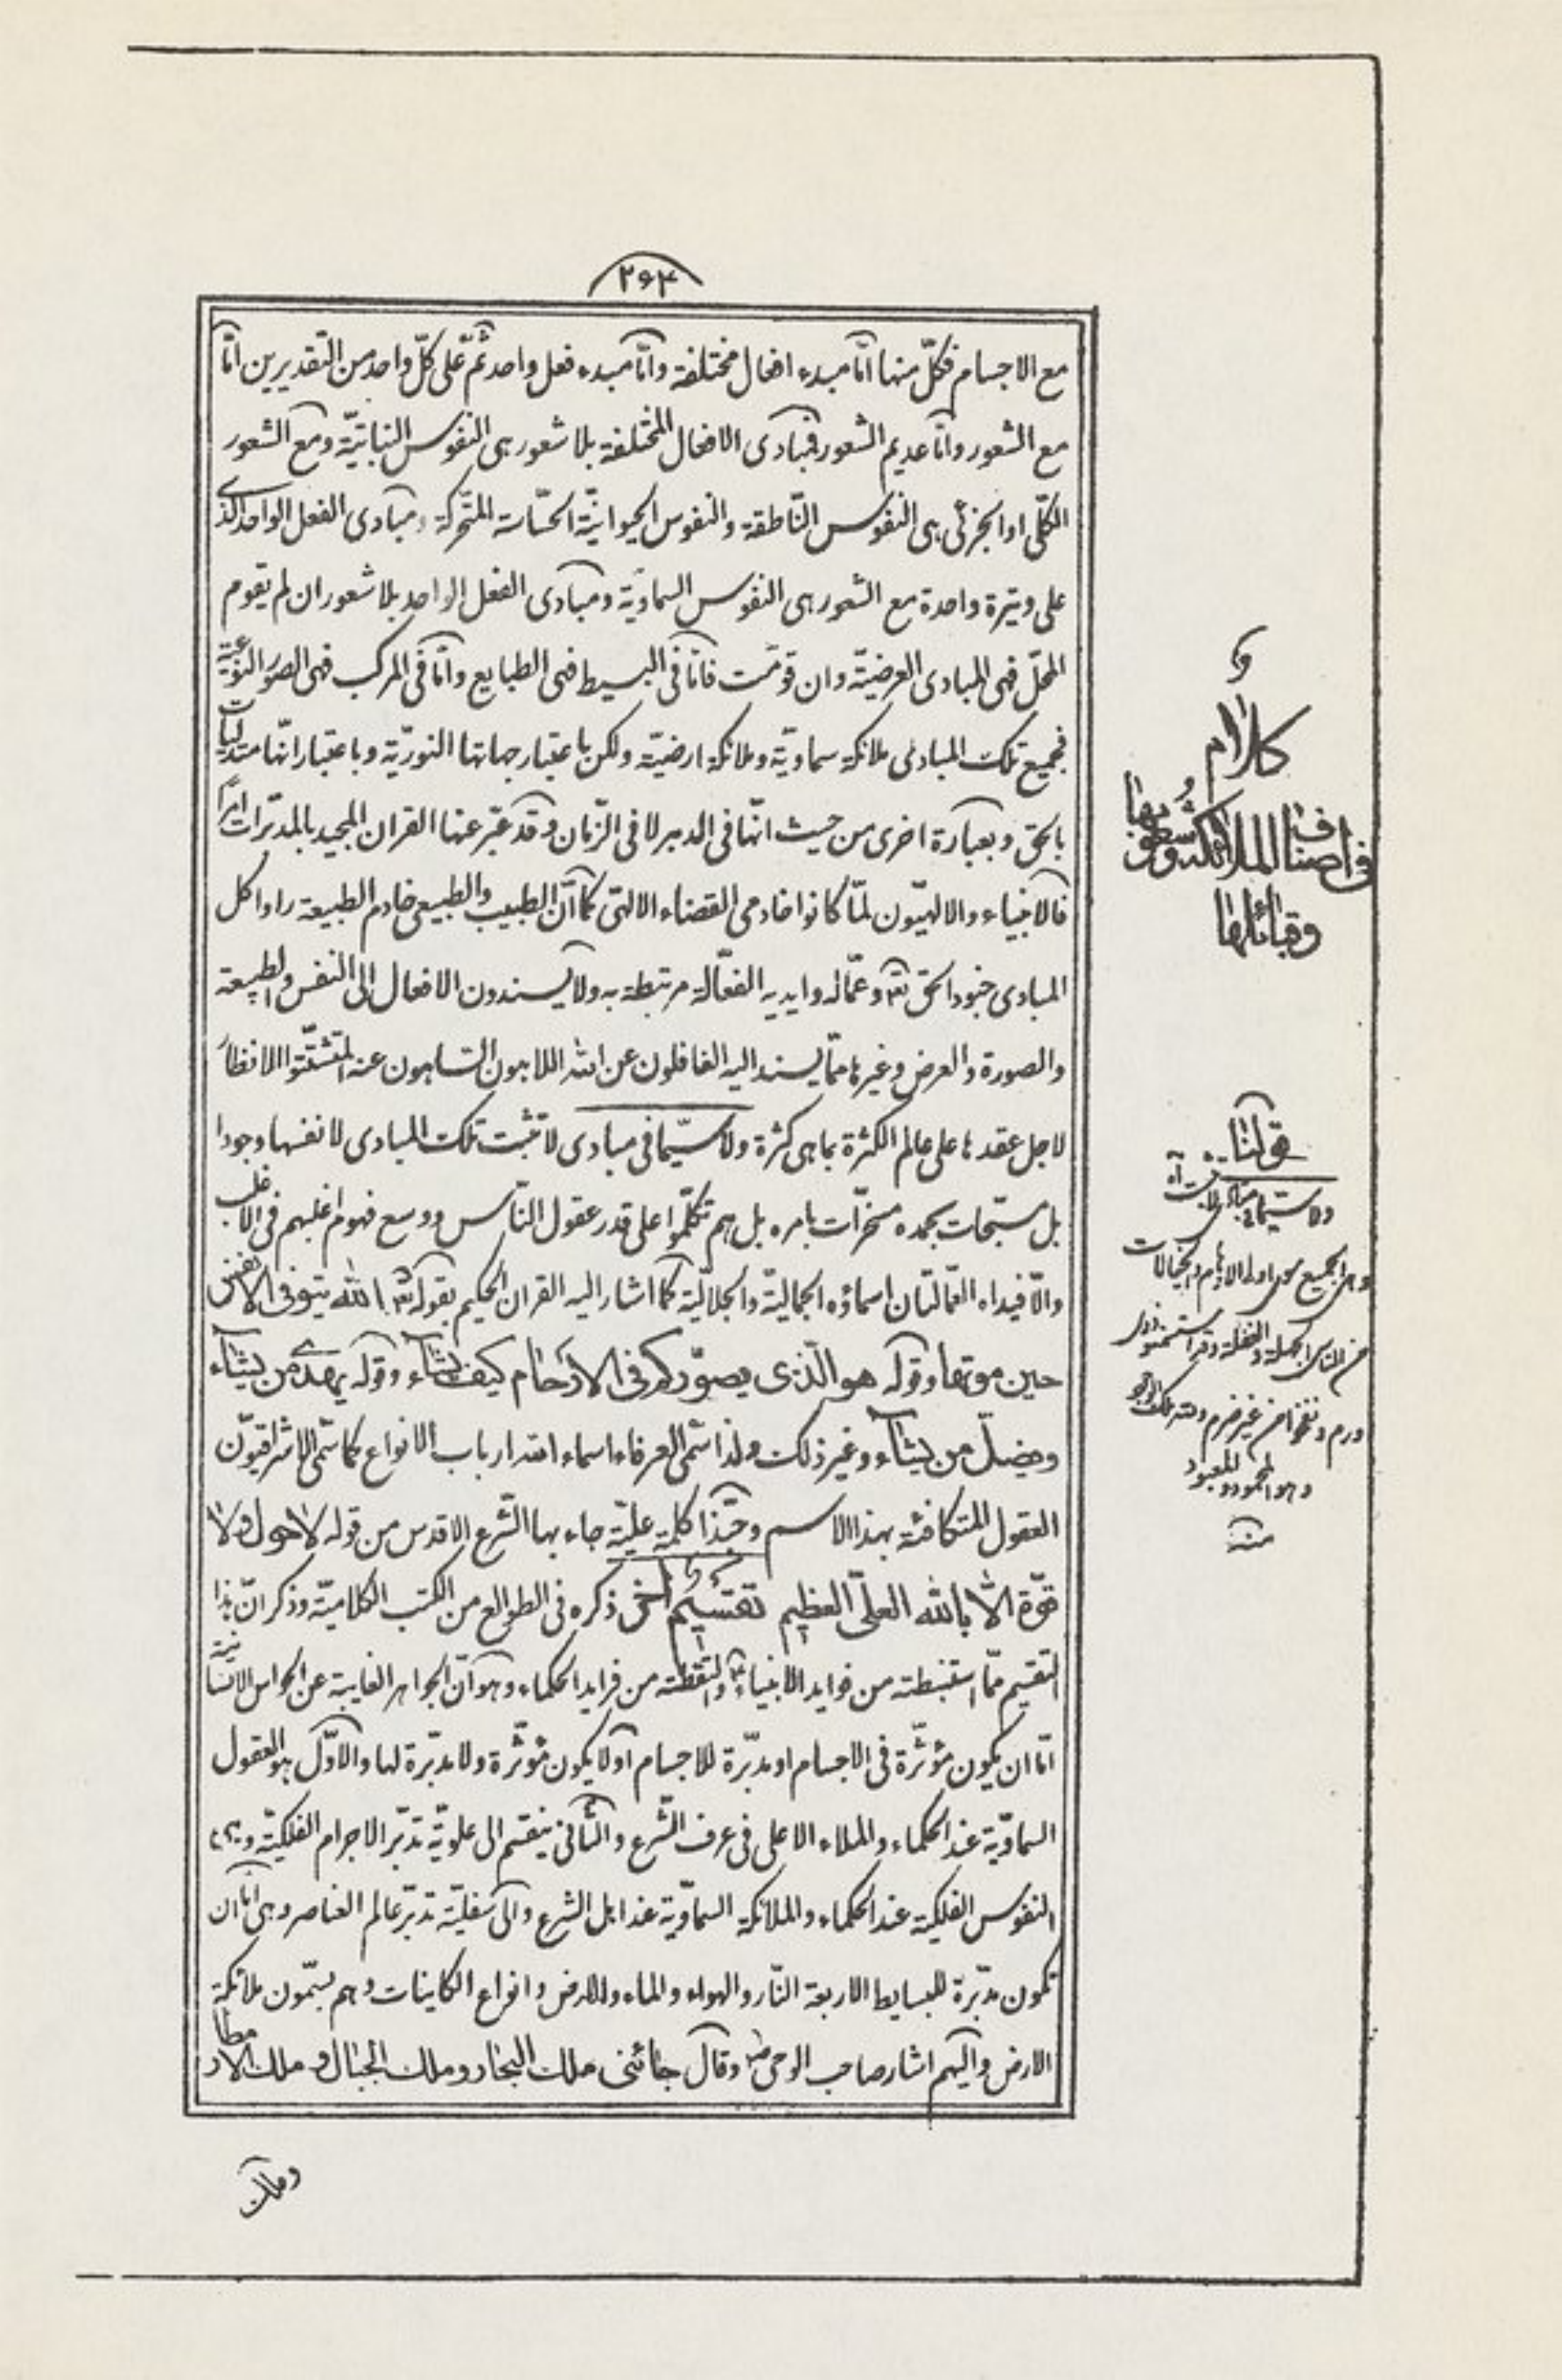 ۲۶۳
مع الاجسام فكلّ منها امّا مبدء افعال مختلفة وامّا مبدء فعل واحد ثمّ على كلّ واحد من التقديرين امّا
مع الشعور وامّا عديم الشعور فمبادى الافعال المختلفة بلا شعور هى النفوس النباتيّة ومع الشعور
الكلّى او الجزئى هى النفوس النّاطقة والنفوس الحيوانيّة الحسّاسة المتحرّكة ومبادى الفعل الواحد الذى
على وتيرة واحدة مع الشعور هى النفوس السماويّة ومبادى الفعل الواحد بلا شعور ان لم يقوم
المحلّ فهى المبادى العرضيّة وان قوّمت فامّا فى البسيط فهى الطبايع وامّا فى المركب فهى الصور النوعيّة
فجميع تلك المبادى ملائكة سماويّة وملائكة ارضيّة ولكن باعتبار جهاتها النوريّة وباعتبار انّها متدلّيات
بالحق وبعبارة اخرى من حيث انّها فى الدهر لا فى الزّمان وقد عبّر عنها القران المجيد بالمدبّرات امراً
فالانبياء والالهيّون لمّا كانوا خادمى القضاء الالهىّ كما انّ الطبيب والطبيعى خادم الطبيعة راوا كل
المبادى جنود الحق تعالى وعمّاله وايديه الفعّالة مرتبطة به ولا يسندون الافعال الى النفس والطبيعة
والصورة والعرض وغيرها ممّا يسند اليه الغافلون عن الله اللاهون السّاهون عنه المتشتّتوا الانظار
لاجل عقدها على عالم الكثرة بما هى كثرة ولا سيّما فى مبادى لا تثبت تلك المبادى لانفسها وجودا
بل مسبّحات بحمده مسخّرات بامره بل هم تكلّموا على قدر عقول النّاس ووسع فهوم اغلبهم فى الاغلب
والّا فيداه العمّالتان اسماؤه الجماليّة والجلاليّة كما اشار اليه القران الحكيم بقوله تعالى الله يتوفى الانفس
حين موتها وقوله هو الّذى يصوّركم فى الارحام كيف يشاء وقوله يهدى من يشاء
ويضلّ من يشاء وغير ذلك ولذا سمّى العرفاء اسماء الله ارباب الانواع كما سمّى الاشراقيّون
العقول المتكافئة بهذا الاسم وحبّذا كلمة عليّة جاء بها الشّرع الاقدس من قوله لا حول ولا
قوّة الّا بالله العلىّ العظيم تقسيم اخر ذكره فى الطوالع من الكتب الكلاميّة وذكر انّ هذا
التقسيم ممّا استنبطته من فوايد الانبياء والتقطته من فرايد الحكماء وهو انّ الجواهر الغايبة عن الحواس الانسانية
امّا ان يكون مؤثّرة فى الاجسام او مدبّرة للاجسام او لا يكون مؤثّرة ولا مدبّرة لها والاوّل هو العقول
السماويّة عند الحكماء والملاء الاعلى فى عرف الشّرع والثّانى ينقسم الى علويّة تدبّر الاجرام الفلكيّة وهى
النفوس الفلكية عند الحكماء والملائكة السماويّة عند اهل الشرع والى سفليّة تدبّر عالم العناصر وهى امّا ان
تكون مدبّرة للبسايط الاربعة النّار والهواء والماء والارض وانواع الكاينات وهم يسمّون ملائكة
الارض واليهم اشار صاحب الوحى وقال جائنى ملك البحار وملك الجبال وملك الامطار
وملك
كلام
فى اصناف الملائكة وشعوبها
وقبائلها
قولنا
ولا سيّما فى مبادى لا تثبت آه
وهو المحمود والمعبود
منه